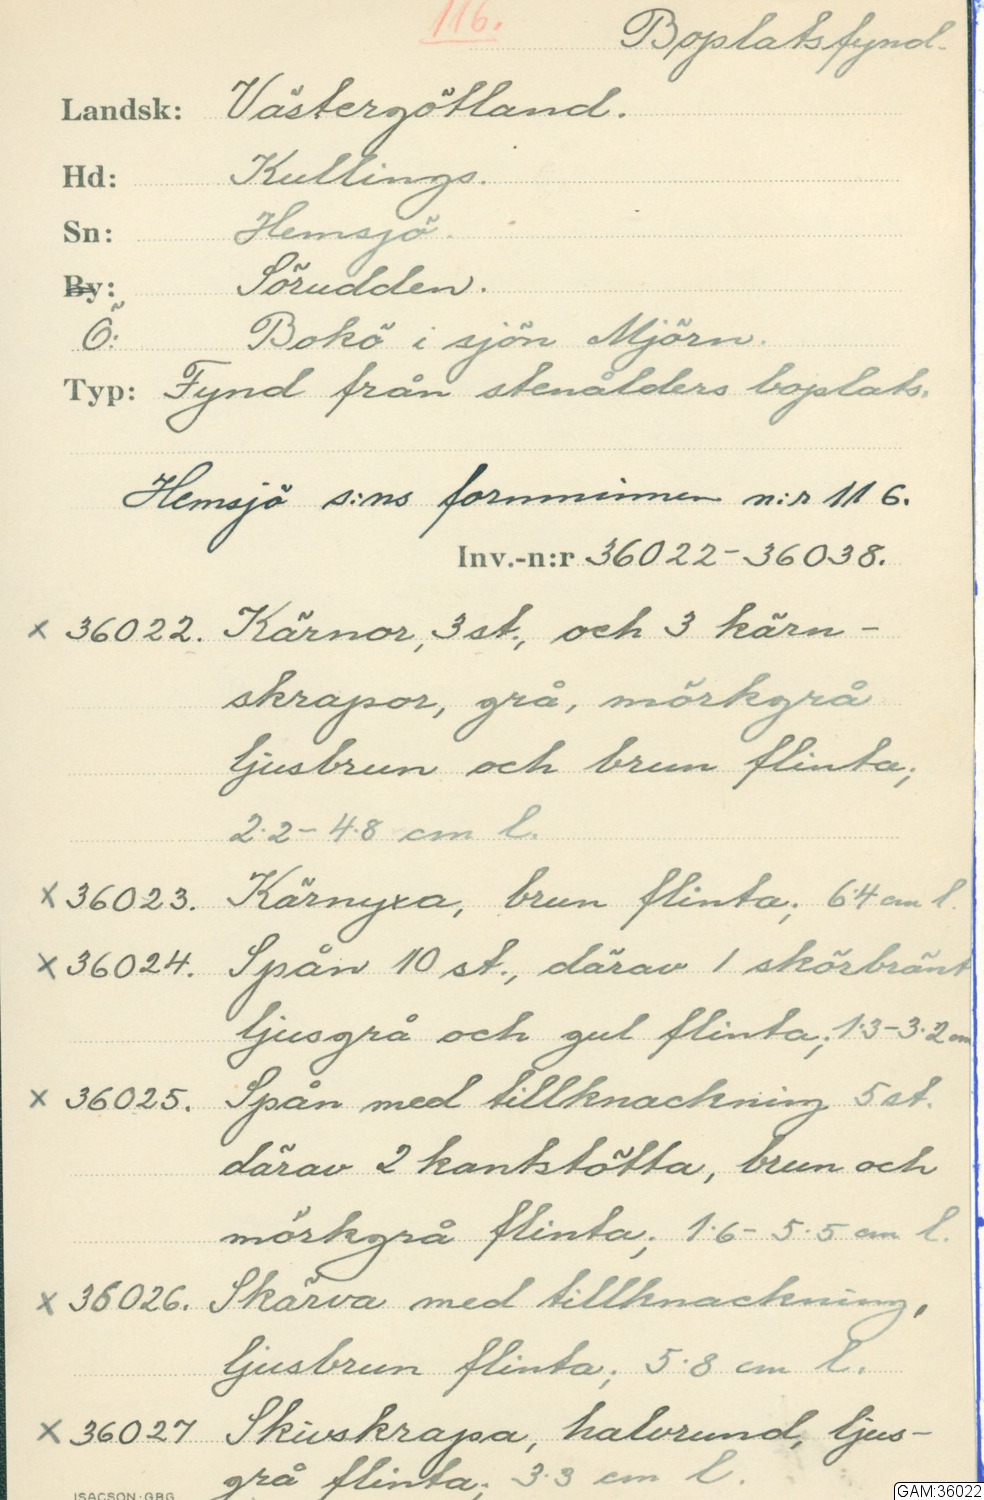 116.
Boplatsfynd.
Landsk: Västergötland.
Hd: Kullings.
Sn: Hemsjö.
By: Sörudden.
Ö: Bokö i sjön Mjörn.
Typ: Fynd från stenålders boplats.
Hemsjö s:ns fornminnen n:r 116.
Inv.-n:r 36022-36038.
x 36022. Kärnor, 3 st., och 3 kärn-
skrapor, grå, mörkgrå
ljusbrun och brun flinta;
2.2-4.8 cm l.
x 36023. Kärnyxa, brun flinta; 6.4 cm l.
x 36024. Spån 10 st., därav 1 skörbränt
ljusgrå och gul flinta; 1.3-3.2 cm
x 36025. Spån med tillknackning 5 st.
därav 2 kantstötta, brun och
mörkgrå flinta; 1.6-5.5 cm l.
x 36026. Skärva med tillknackning,
ljusbrun flinta; 5.8 cm l.
x 36027 Skivskrapa, halvrund, ljus-
grå flinta; 3.3 cm l.
ISACSON·GBG
GAM:36022